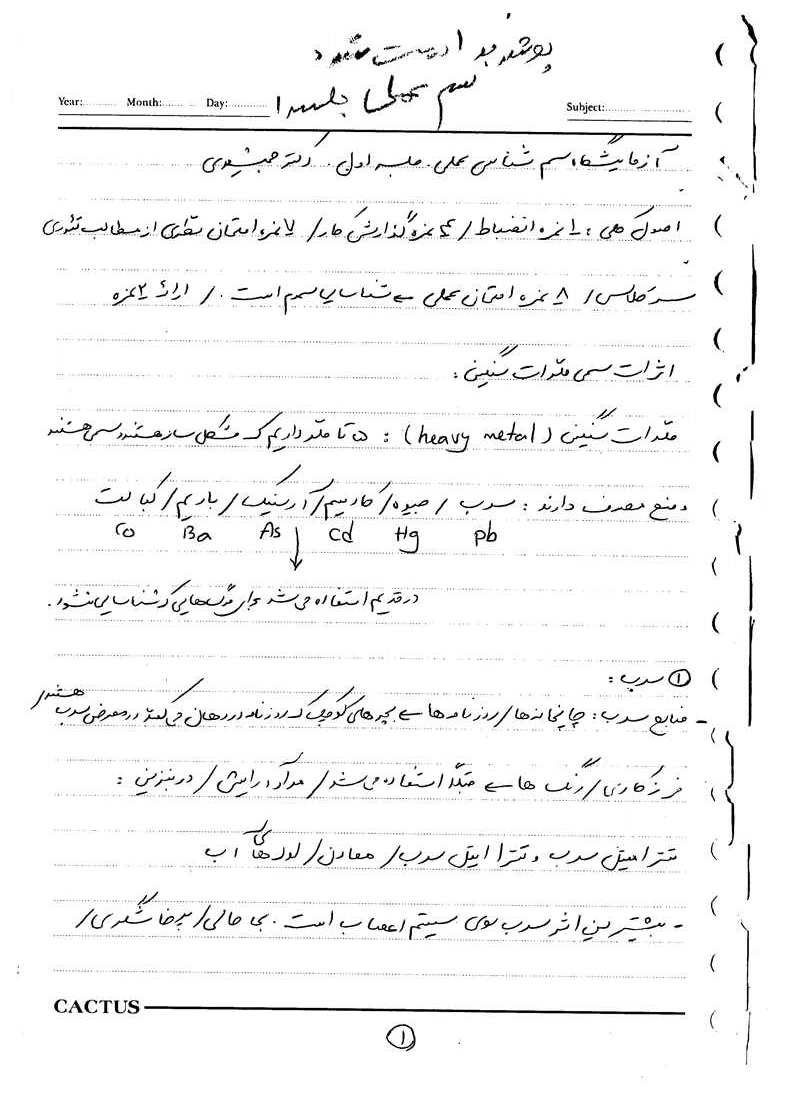 پوشه بعد ادیت شد
سم عملی جلسه ۱
Year:.......... Month:.......... Day:.......... Subject:..........
آزمایشگاه سم شناسی عملی. جلسه اول. دکتر
اصول کلی: ۱ نمره انضباط / ۴ نمره گذارش کار / ۷ نمره امتحان تئوری از مطالب تئوری
سر کلاس / ۸ نمره امتحان عملی ← شناسایی سم است. / ارائه ۲ نمره
اثرات سمی فلزات سنگین:
فلزات سنگین (heavy metal): ۵ تا فلز داریم که مشکل ساز هستند و سمی هستند
و منع مصرف دارند: سرب / جیوه / کادمیم / آرسنیک / باریم / کبالت
Pb Hg Cd As Ba Co
در قدیم استفاده می‌شد برای مرگ‌هایی که شناسایی نشود.
① سرب:
- منابع سرب: چاپخانه‌ها / روزنامه‌ها ← بچه‌های کوچک که روزنامه در دهان می‌کنند در معرض سرب هستند /
فلزکاری / رنگ ها ← قبلا استفاده می‌شد / مواد آرایش / در بنزین:
تترا متیل سرب و تترا اتیل سرب / معادن / لوله‌های آب
- بیشترین اثر سرب روی سیستم اعصاب است. بی حالی / پرخاشگری /
CACTUS
①